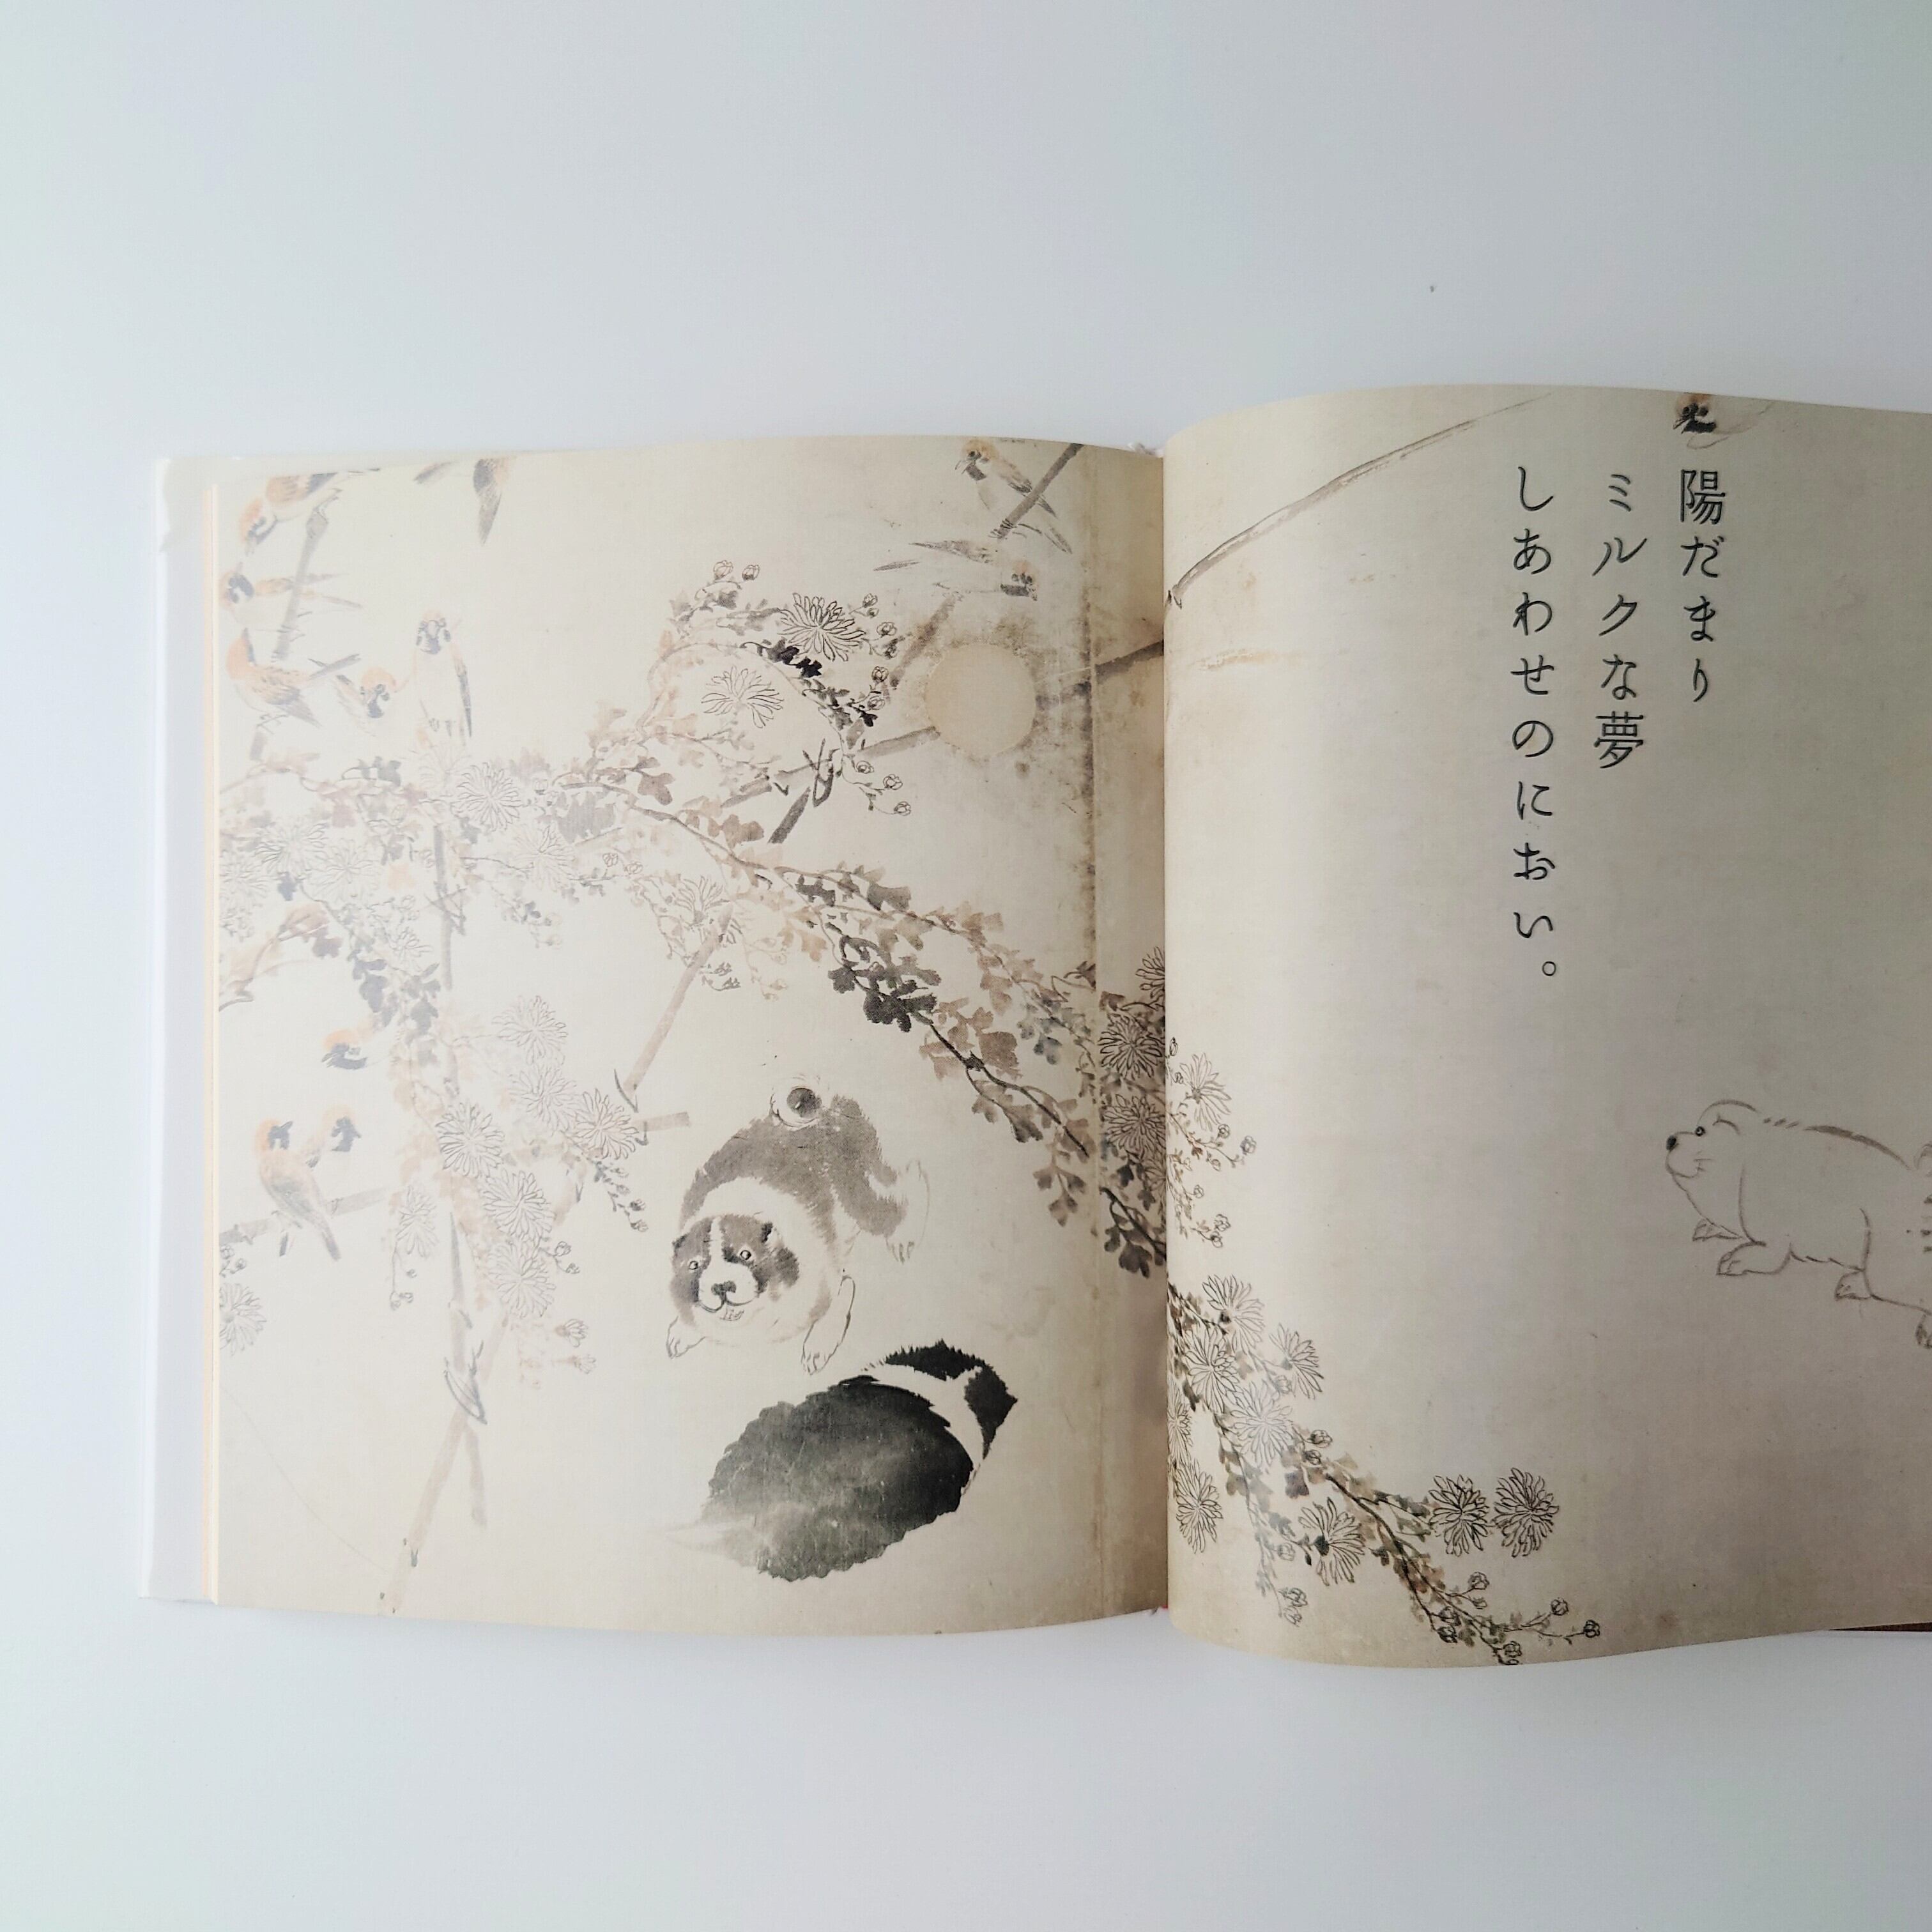 陽だまり
ミルクな夢
しあわせのにおい。